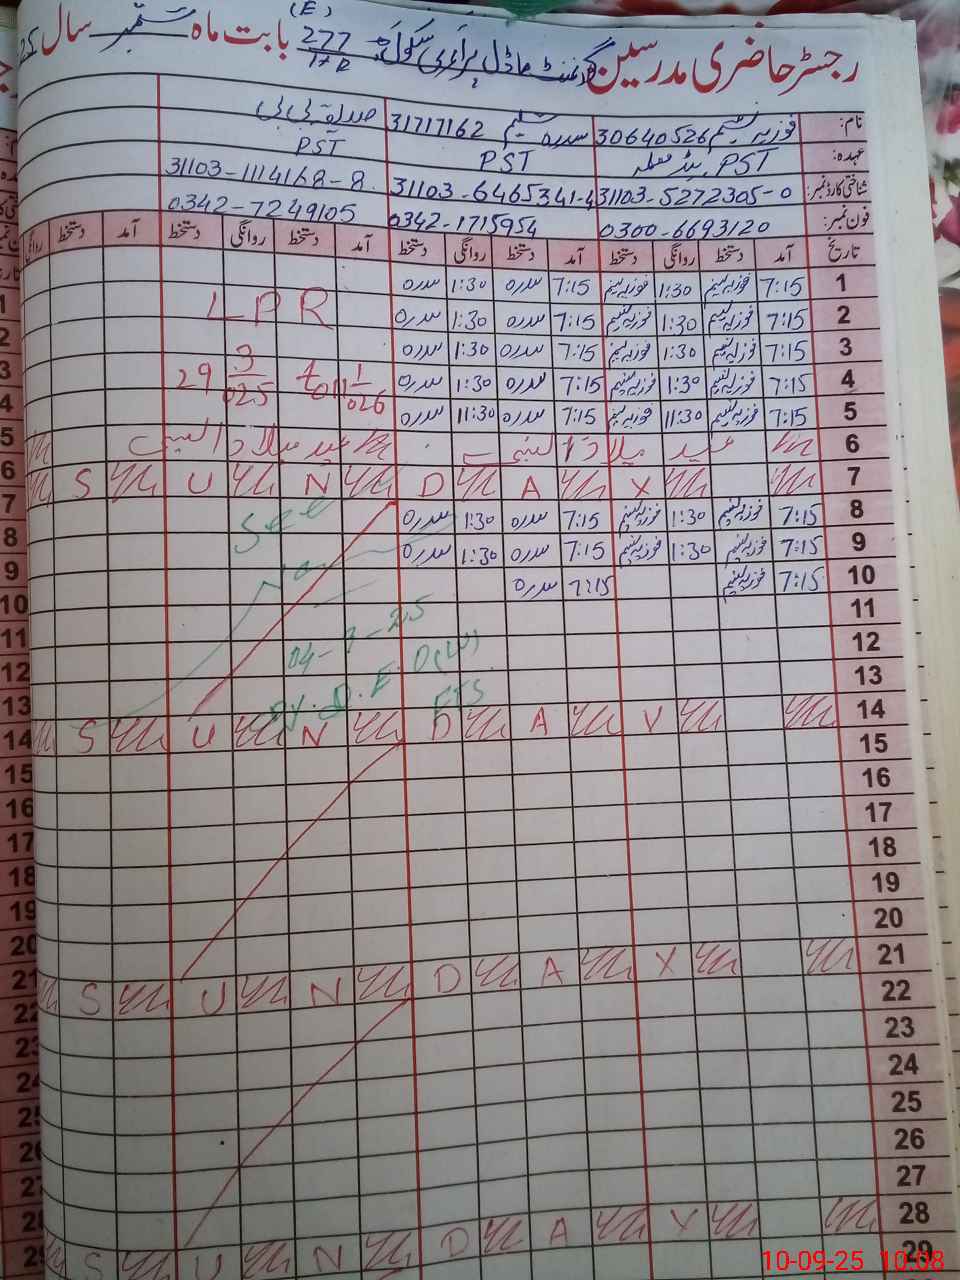 رجسٹر حاضری مدرسین گورنمنٹ ماڈل پرائمری سکول 277 (E) بابت ماہ ستمبر سال 25
TTR
نام: فوزیہ نسیم 30640526 سدرہ سلیم 31717162 صدیقہ بی بی
عہدہ: PST, ہیڈ معلمہ PST PST
شناختی کارڈ نمبر: 31103-5272305-0 31103-6465341-4 31103-1114168-8
فون نمبر: 0300-6693120 0342-1715954 0342-7249105
تاریخ آمد دستخط روانگی دستخط آمد دستخط روانگی دستخط آمد دستخط روانگی دستخط آمد دستخط روانگی
1 7:15 فوزیہ نسیم 1:30 فوزیہ نسیم 7:15 سدرہ 1:30 سدرہ
2 7:15 فوزیہ نسیم 1:30 فوزیہ نسیم 7:15 سدرہ 1:30 سدرہ LPR
3 7:15 فوزیہ نسیم 1:30 فوزیہ نسیم 7:15 سدرہ 1:30 سدرہ
4 7:15 فوزیہ نسیم 1:30 فوزیہ نسیم 7:15 سدرہ 1:30 سدرہ 29 3/025 to 11 1/026
5 7:15 فوزیہ نسیم 11:30 فوزیہ نسیم 7:15 سدرہ 11:30 سدرہ
6 عید میلاد النبی عید میلاد النبی
7 S U N D A Y
8 7:15 فوزیہ نسیم 1:30 فوزیہ نسیم 7:15 سدرہ 1:30 سدرہ
See
9 7:15 فوزیہ نسیم 1:30 فوزیہ نسیم 7:15 سدرہ 1:30 سدرہ
10 7:15 فوزیہ نسیم 7:15 سدرہ
11
12
04-9-25
13
Dy. D.E.O (W)
FTS
14 S U N D A Y
15
16
17
18
19
20
21 S U N D A Y
22
23
24
25
26
27
28 S U N D A Y
29
10-09-25 10:08